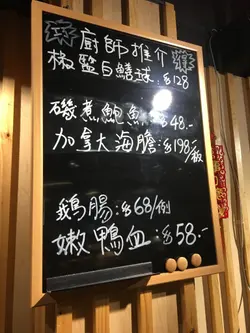 廚師推介
椒鹽白鱔球:$128
磯煮鮑魚:$48.-
加拿大海膽:$198/板
鵝腸:$68/例
嫩鴨血:$58.-